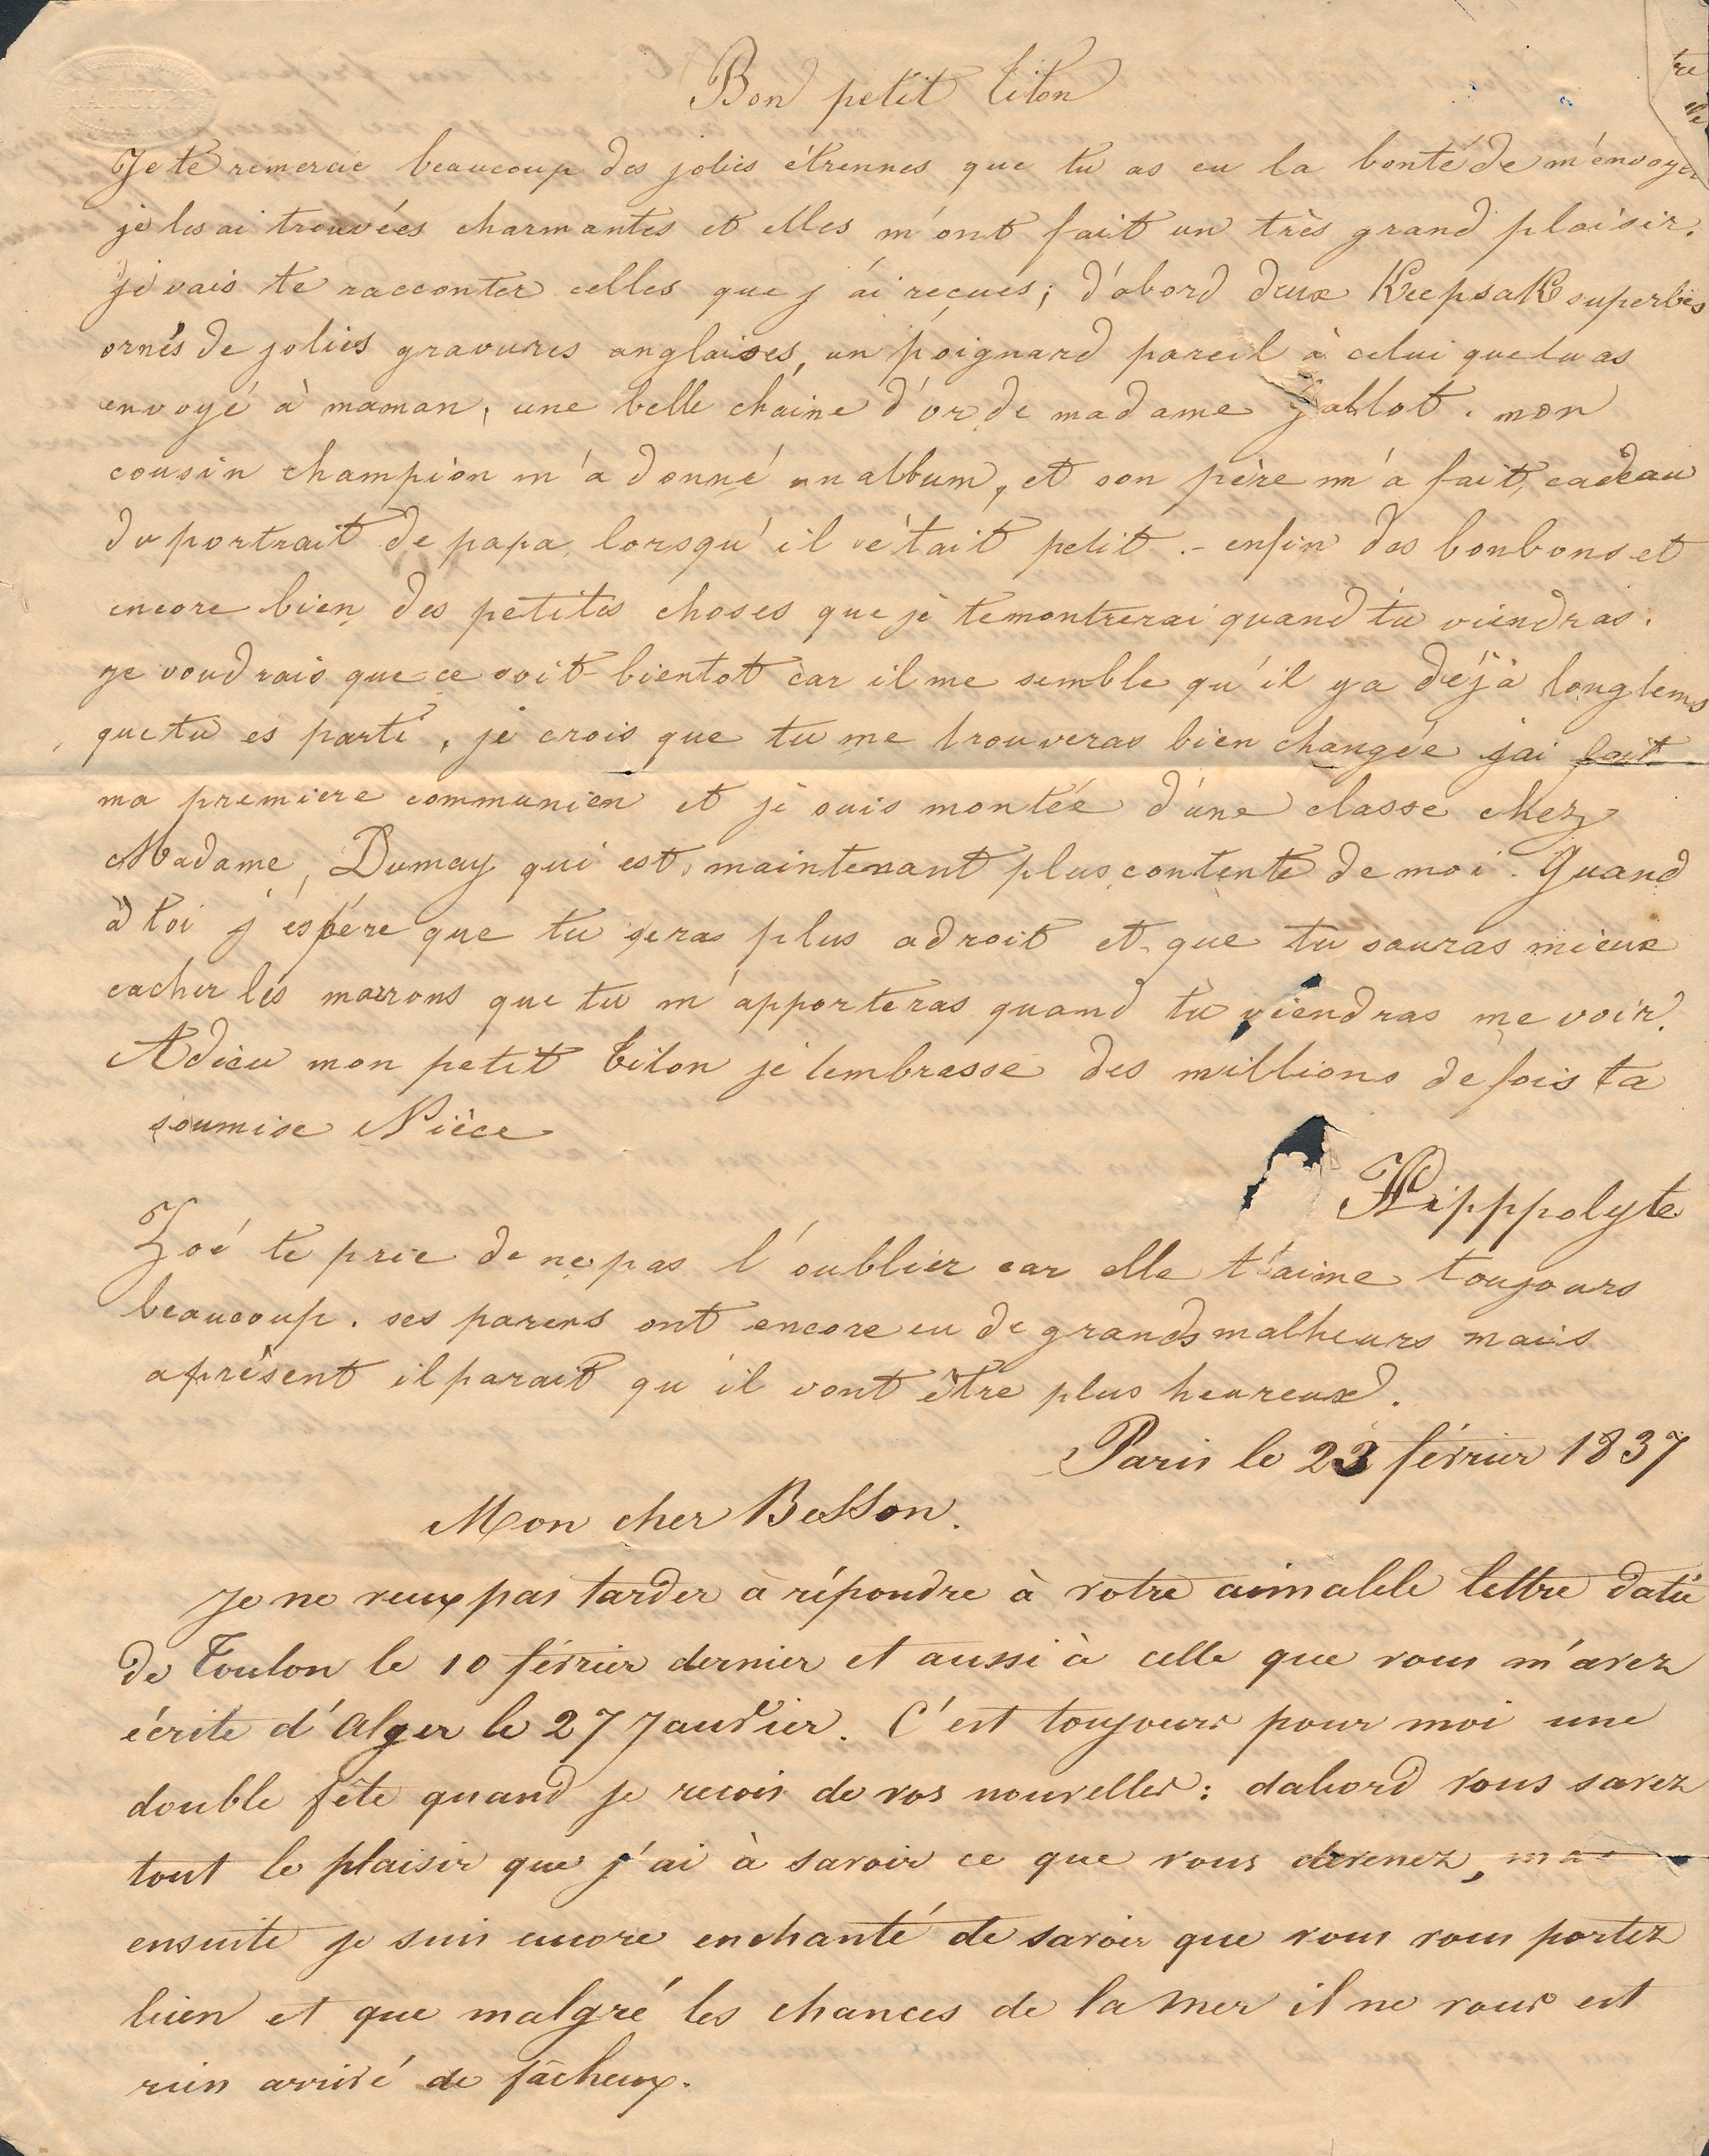 Bon petit titon
Je te remercie beaucoup des jolies étrennes que tu as eu la bonté de m'envoyer
je les ai trouvées charmantes et elles m'ont fait un très grand plaisir.
je vais te racconter celles que j'ai reçues; d'abord deux Keepsak superbes
ornés de jolies gravures anglaises, un poignard pareil à celui que tu as
envoyé à maman, une belle chaine d'or de madame Jablot. mon
cousin champion m'a donné un album, et son père m'a fait cadeau
du portrait de papa lorsqu'il était petit.- enfin des bonbons et
encore bien des petites choses que je te montrerai quand tu viendras.
je voudrais que ce soit bientot car il me semble qu'il y a déjà longtems
que tu es parti, je crois que tu me trouveras bien changée j'ai fait
ma premiere communion et je suis montée d'une classe chez
Madame, Dumay qui est maintenant plus contente de moi. Quand
à toi j'éspére que tu seras plus adroit et que tu sauras mieux
cacher les marrons que tu m'apporteras quand tu viendras me voir.
Adieu mon petit titon je t'embrasse des millions de fois ta
soumise Nièce
Hipppolyte
Zoé te prie de ne pas l'oublier car elle t'aime toujours
beaucoup. ses parens ont encore eu de grands malheurs mais
aprésent il parait qu'il vont être plus heureux.
Paris le 23 février 1837
Mon cher Besson.
Je ne veux pas tarder à répondre à votre aimable lettre datée
de Toulon le 10 février dernier et aussi à celle que vous m'avez
écrite d'Alger le 27 Janvier. C'est toujours pour moi une
double fête quand je reçois de vos nouvelles: dabord vous savez
tout le plaisir que j'ai à savoir ce que vous devenez,
ensuite je suis encore enchanté de savoir que vous vous portez
bien et que malgré les chances de la mer il ne vous est
rien arrivé de fâcheux.